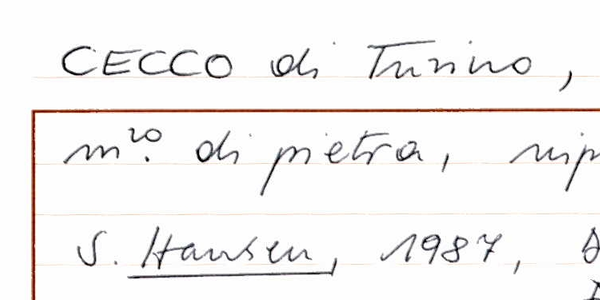 CECCO di Turino,
m.ro di pietra,
S. Hansen, 1987,